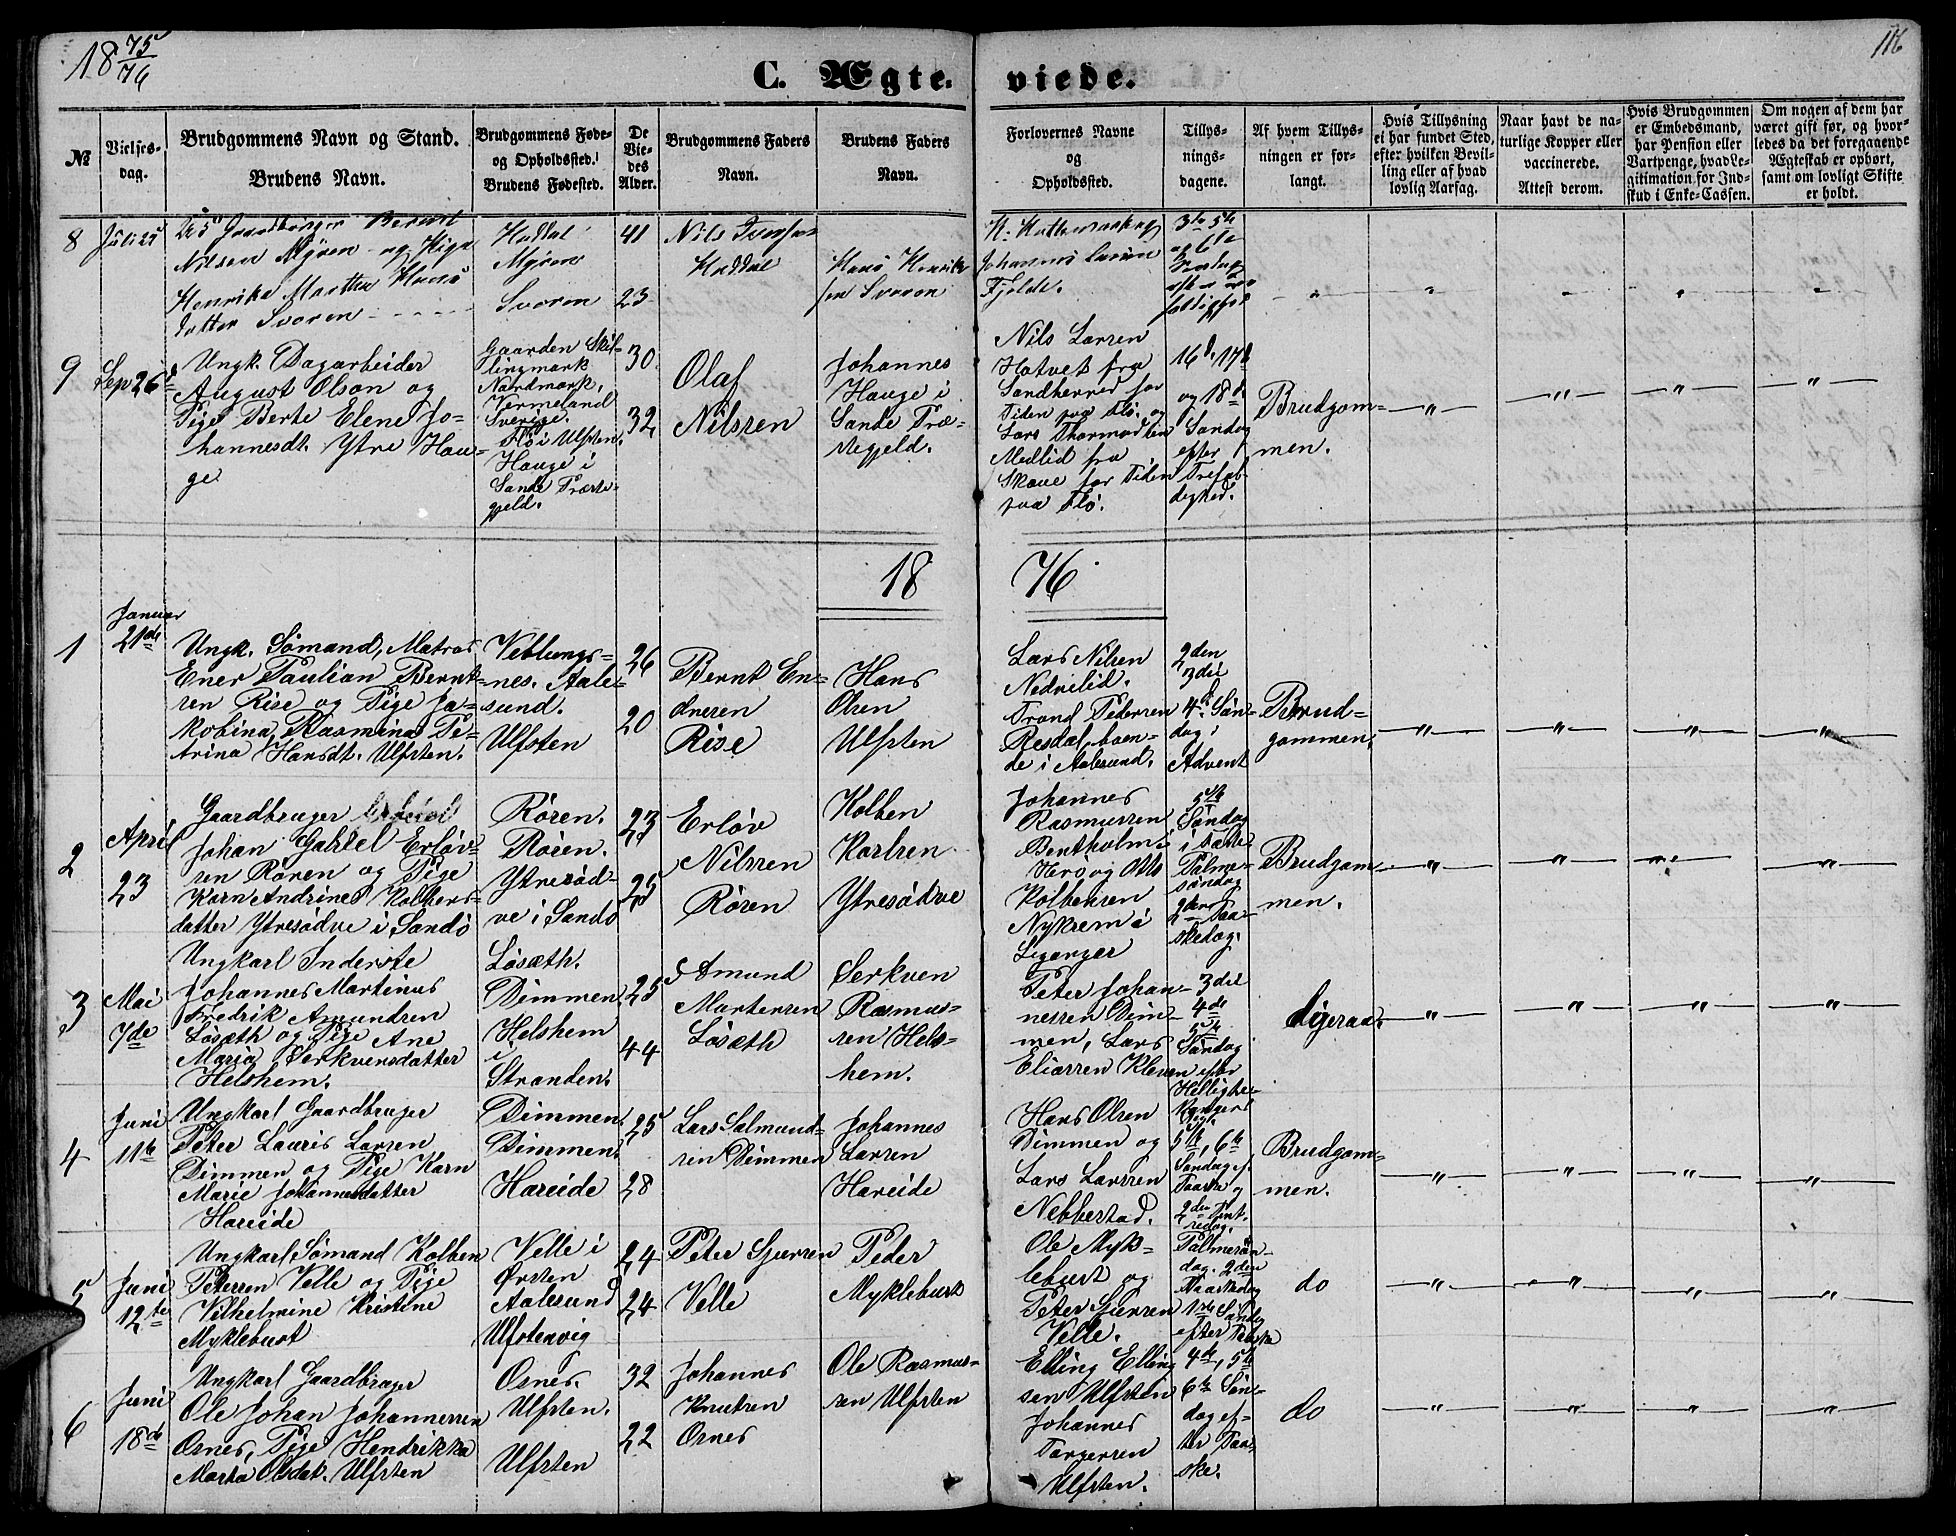 18 75/76
116
C. Ægte-
viede.
№
Vielses-
dag.
Brudgommens Navn og Stand.
Brudens Navn.
Brudgommens Føde-
og Opholdssted.
Brudens Fødested.
De
Vie-
des
Alder.
Brudgommens Faders
Navn.
Brudens Faders
Navn.
Forlovernes Navne
og
Opholdssted.
Tillys-
nings-
dagene.
Af hvem Tillys-
ningen er for-
langt.
Hvis Tillysning
ei har fundet Sted,
efter hvilken Bevil-
ling eller af hvad
lovlig Aarsag.
Naar havt de na-
turlige Kopper eller
vaccinerede.
Attest derom.
Hvis Brudgommen
er Embedsmand,
har Pension eller
Vartpenge, hvad Le-
gitimation for Ind-
skud i Enke-Cassen.
Om nogen af dem har
været gift før, og hvor-
ledes da det foregaaende
Ægteskab er ophørt,
samt om lovligt Skifte
er holdt.
8
Juli 25
Nilsen Myren og Pige
Henrika Martha Hans
datter Svoren
Haddal
Myren
Svoren
41
23
Nils Iversen
Haddal
Hans Henrik
sen Svoren
Johannes Larsen
Fjelde.
3de 5te
og 6te
Søndag
9
Sep 26d
Ungk. Dagarbeider
August Olson og
Pige Berte Elene Jo-
hannesdt. Ytre Hau-
ge
Gaarden Skil-
lingmark
Nordmark,
Vermeland
Sverige.
Flø i Ulfsten.
Hauge i
Sande Præste-
gjeld.
30
32
Olaf
Nilssen
Johannes
Hauge i
Sande Præ-
stegjeld.
Nils Larsen
Hatvet fra
Sandherred for
Tiden paa Flø. og
Lars Thormodsen
Medlid fra
Skaue for Tiden
paa Flø.
16d, 17d
og 18d
Søndag
efter
Trefol-
dighed.
Brudgom-
men.
18 76.
1
Januar
21de
Ungk. Sømand, Matros
Ener Paulian Bernt-
sen Rise og Pige Ja-
kobina, Rasmina Pe-
trina Hansdt. Ulfsten.
Veblungs-
nes. Aale-
sund.
Ulfsten
26
20
Bernt En-
dresen
Rise
Hans
Olsen
Ulfsten
Lars Nilsen
Nedrelid.
Trond Pedersen
Resdal, boen-
de i Aalesund.
2den
3die
4d Søn-
dag i
Advent
Brud-
gommen.
2
April
23
Gaardbruger
Johan Gabriel Erløv-
sen Røren og Pige
Karn Andrine Kolbens-
datter Ytresødve i Sandø
Røren.
Røren.
Ytresød-
ve i Sandø
23
25
Erløv
Nilssen
Røren
Kolben
Karlsen
Ytresødve
Johannes
Rasmussen
Bentholm i
Herø og Otto
Kolbensen
Nykrem i
Liganger
5te
Søndag
i Faste
Palme-
søndag
2den Paa-
skedag.
Brudgom-
men.
3
Mai
7de
Ungkarl Inderste
Johannes Martinus
Fredrik Amundsen
Løsæth og Pige Ane
Maria Serkvensdatter
Helshem.
Løsæth.
Dimmen
Helshem
i
Stranden.
25
44
Amund
Martensen
Løsæth
Serkven
Rasmus-
sen Hels-
hem.
Peter Johan-
nessen Dim-
men, Lars
Eliassen Kleven
3die
4de
5te
Søndag
efter
Hellighe-
Kongers
Brudgom-
men.
4
Juni
11te
Ungkarl Gaardbruger
Peter Lauris Larsen
Dimmen og Pige Karn
Marie Johannesdatter
Hareide
Dimmen.
Dimmen.
Hareide
25
28
Lars Salmund-
sen Dimmen
Johannes
Larsen
Hareide
Hans Olsen
Dimmen og
Lars Larsen
Nebbestad.
5te, 6te
Søndag ef.
Paaske og
2den Pint-
sedag.
5
Juni
12te
Ungkarl Sømand Kolben
Petersen Velle og Pige
Vilhelmine Kristine
Myklebust
Velle i
Ørsten
Aalesund
Ulfstenvig
24
24
Peter Sjursen
Velle
Peder
Myklebust
Ole Myk-
lebust og
Peter Sjursen
Velle.
Palmesøn-
dag. 2den
Paaskedag
1ste Søndg
efter Paaske
do
6
Juni
18de
Ungkarl Gaardbruger
Ole Johan Johannessen
Osnes, Pige Hendrikka
Marta Olsdat. Ulfsten
Osnes.
Ulfsten.
Ulfsten
32
22
Johannes
Knutsen
Osnes
Ole Rasmus-
sen Ulfsten
Elling Elling
sen Ulfsten
Johannes
Torgersen
Ulfsten.
4de, 5te
6te Søn-
dag ef-
ter Paa-
ske.
do